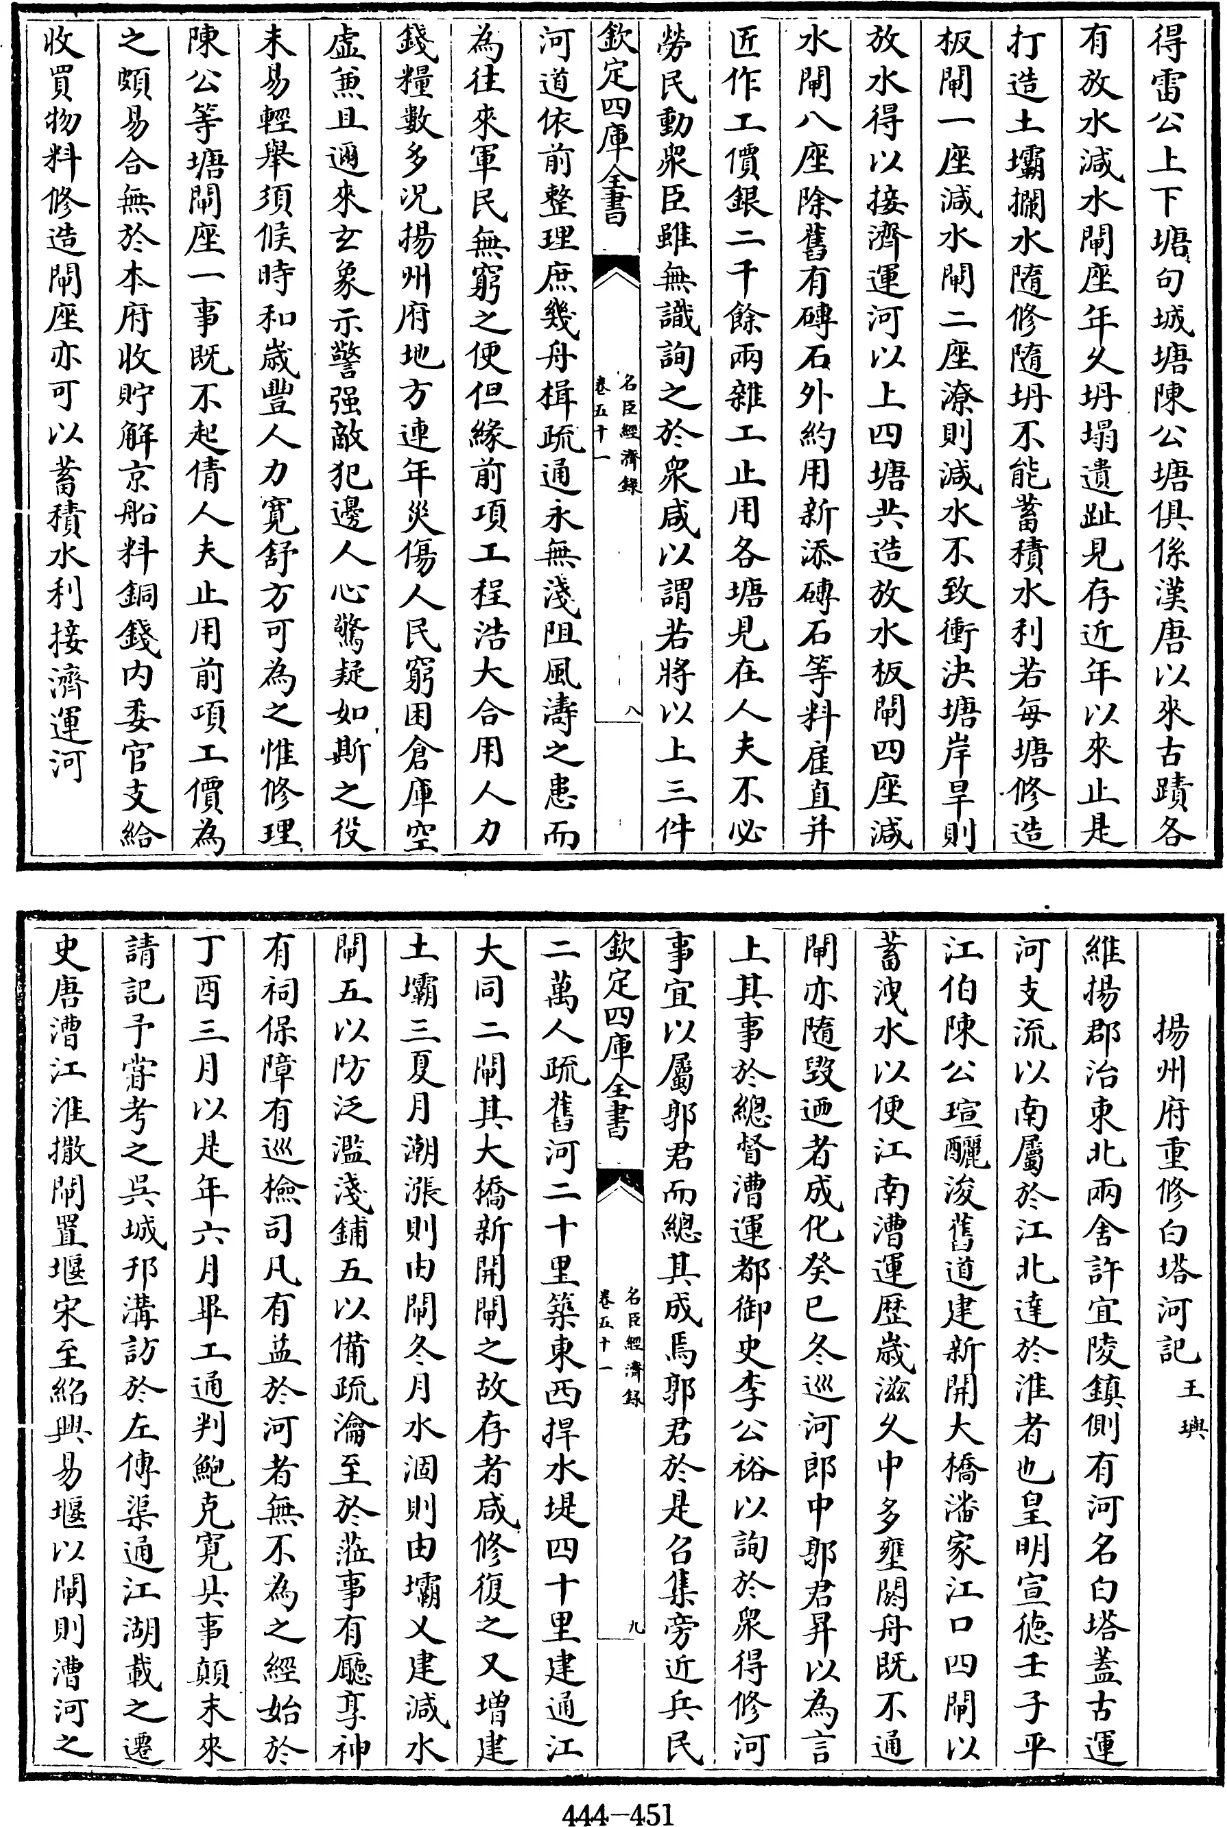 得雷公上下塘句城塘陳公塘俱係漢唐以來古蹟各
有放水減水閘座年久坍塌遺趾見存近年以來止是
打造土壩攔水隨修隨坍不能蓄積水利若每塘修造
板閘一座減水閘二座潦則減水不致衝決塘岸旱則
放水得以接濟運河以上四塘共造放水板閘四座減
水閘八座除舊有磚石外約用新添磚石等料雇直并
匠作工價銀二千餘兩雜工止用各塘見在人夫不必
勞民動衆臣雖無識詢之於衆咸以謂若將以上三件
欽定四庫全書
名臣經濟錄
卷五十一
八
河道依前整理庶幾舟楫疏通永無淺阻風濤之患而
為往來軍民無窮之便但緣前項工程浩大合用人力
錢糧數多况揚州府地方連年災傷人民窮困倉庫空
虛兼且邇來玄象示警强敵犯邊人心驚疑如斯之役
未易輕舉須候時和歲豐人力寬舒方可為之惟修理
陳公等塘閘座一事既不起倩人夫止用前項工價為
之頗易合無於本府收貯解京船料銅錢内委官支給
收買物料修造閘座亦可以蓄積水利接濟運河
揚州府重修白塔河記
王㒜
維揚郡治東北兩舍許宜陵鎮側有河名白塔蓋古運
河支流以南屬於江北達於淮者也皇明宣德壬子平
江伯陳公瑄釃浚舊道建新開大橋潘家江口四閘以
蓄洩水以便江南漕運歷歲滋久中多壅閼舟既不通
閘亦隨毀迺者成化癸巳冬巡河郎中郭君昇以為言
上其事於總督漕運都御史李公裕以詢於衆得修河
事宜以屬郭君而總其成焉郭君於是召集旁近兵民
欽定四庫全書
名臣經濟錄
卷五十一
九
二萬人疏舊河二十里築東西捍水堤四十里建通江
大同二閘其大橋新開閘之故存者咸修復之又增建
土壩三夏月潮漲則由閘冬月水涸則由壩又建減水
閘五以防泛濫淺鋪五以備疏瀹至於涖事有廳享神
有祠保障有巡檢司凡有益於河者無不為之經始於
丁酉三月以是年六月畢工通判鮑克寬具事顛末來
請記予嘗考之吳城邗溝訪於左傳渠通江湖載之遷
史唐漕江淮撤閘置堰宋至紹興易堰以閘則漕河之
444-451